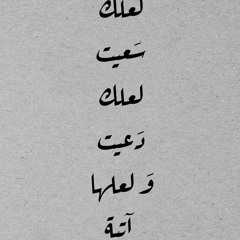 لعلك
سَعيت
لعلك
دَعيت
وَ لعلها
آتية